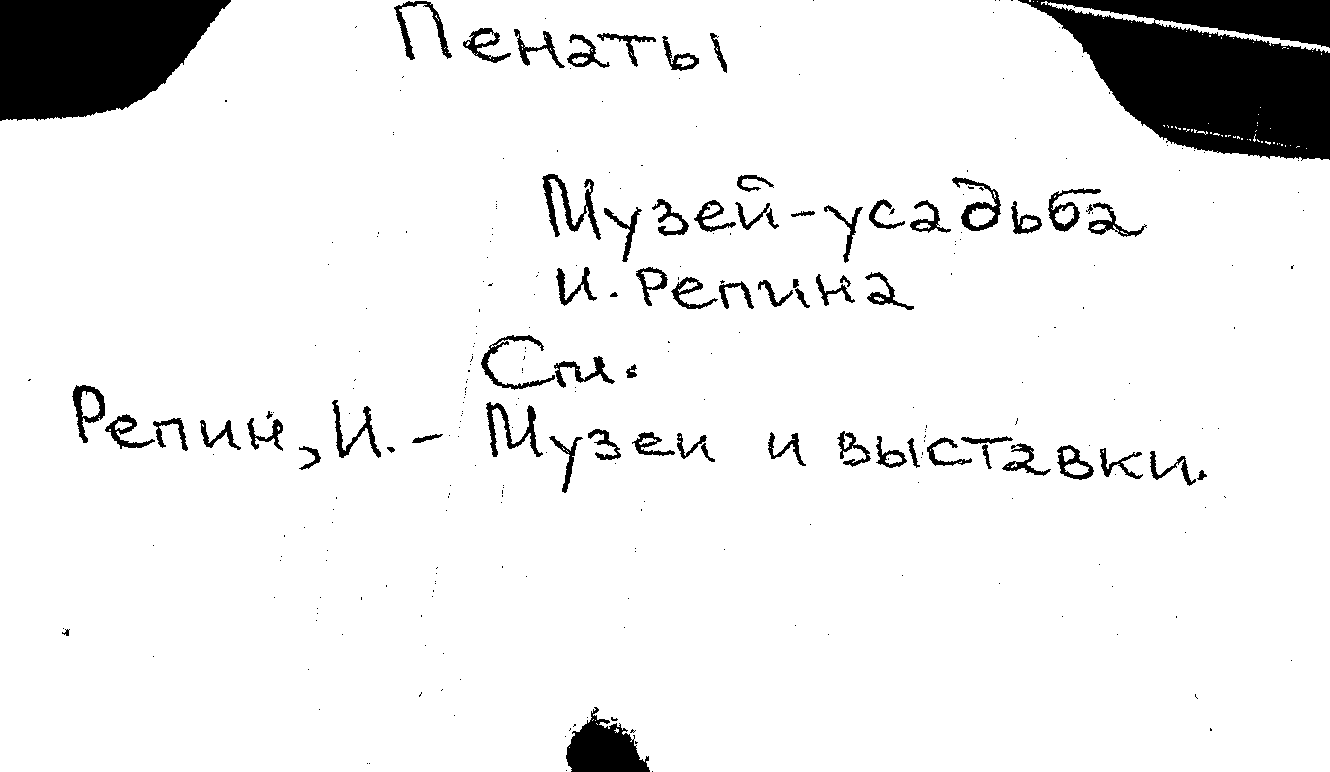 Пенаты
Музей-усадьба
И. Репина
См.
Репин, И. - Музеи и выставки.